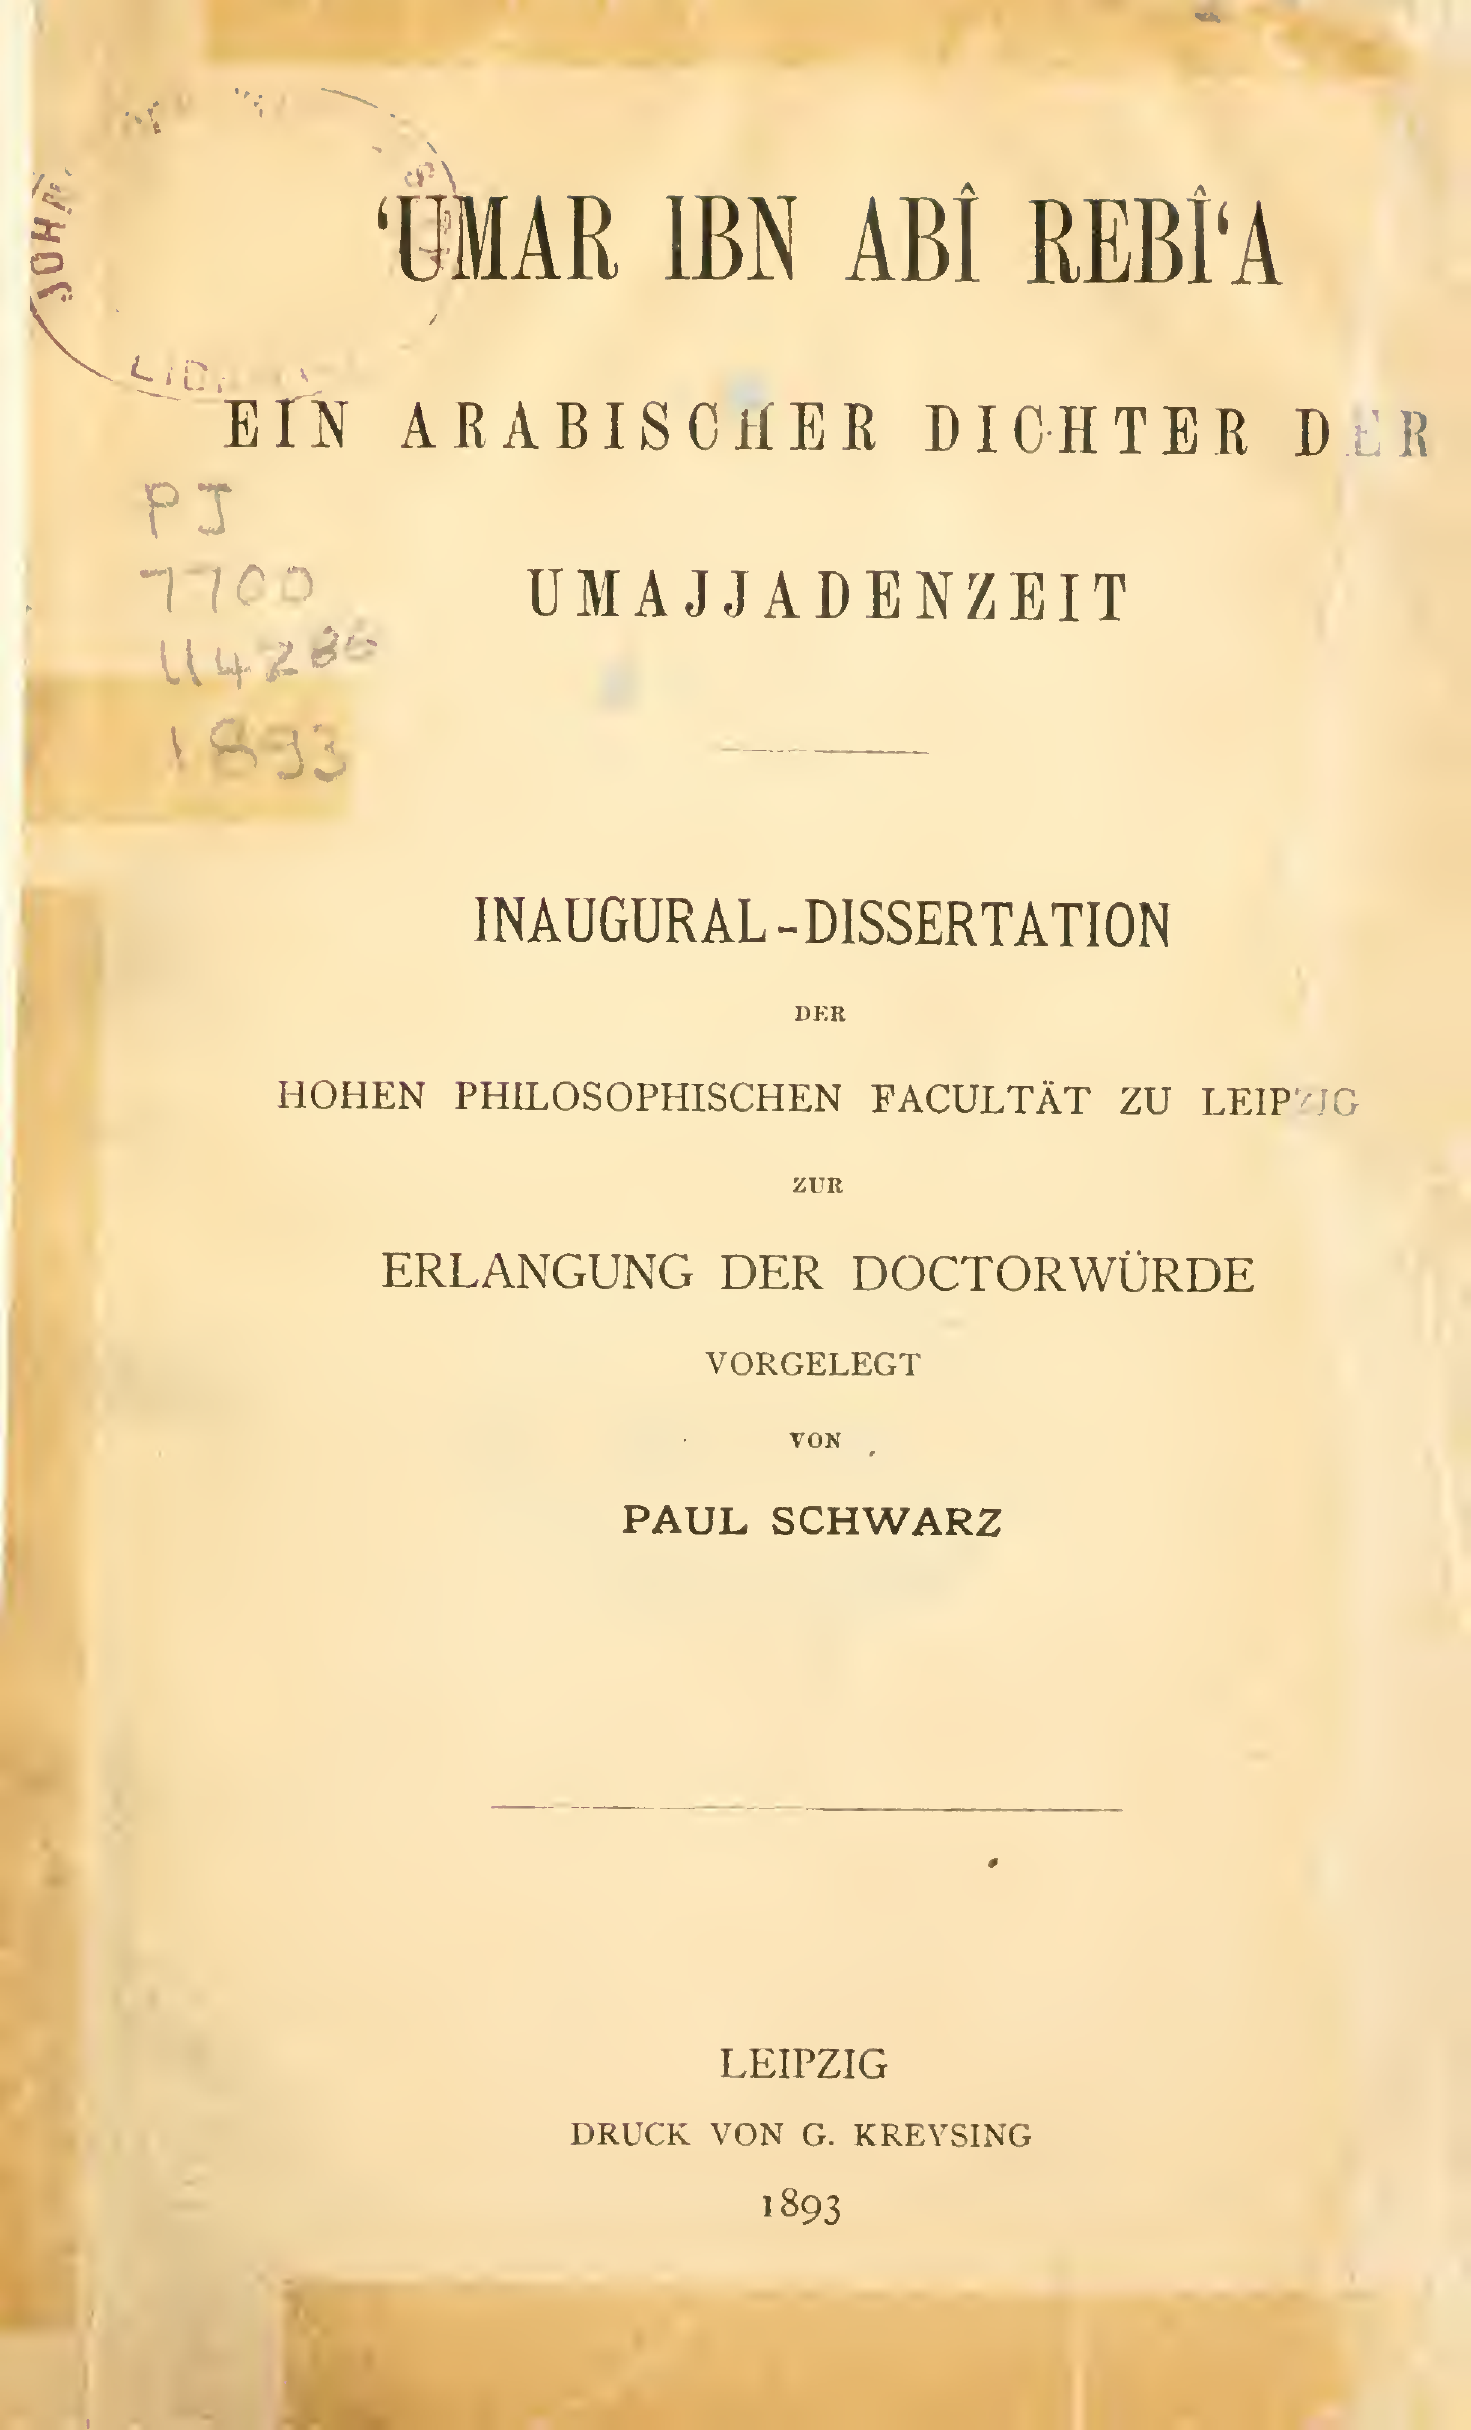 JOHN
‘UMAR IBN ABÎ REBÎ‘A
EIN ARABISCHER DICHTER DER
PJ
7700
U4Z86
1893
UMAJJADENZEIT
INAUGURAL-DISSERTATION
DER
HOHEN PHILOSOPHISCHEN FACULTÄT ZU LEIPZIG
ZUR
ERLANGUNG DER DOCTORWÜRDE
VORGELEGT
VON
PAUL SCHWARZ
LEIPZIG
DRUCK VON G. KREYSING
1893